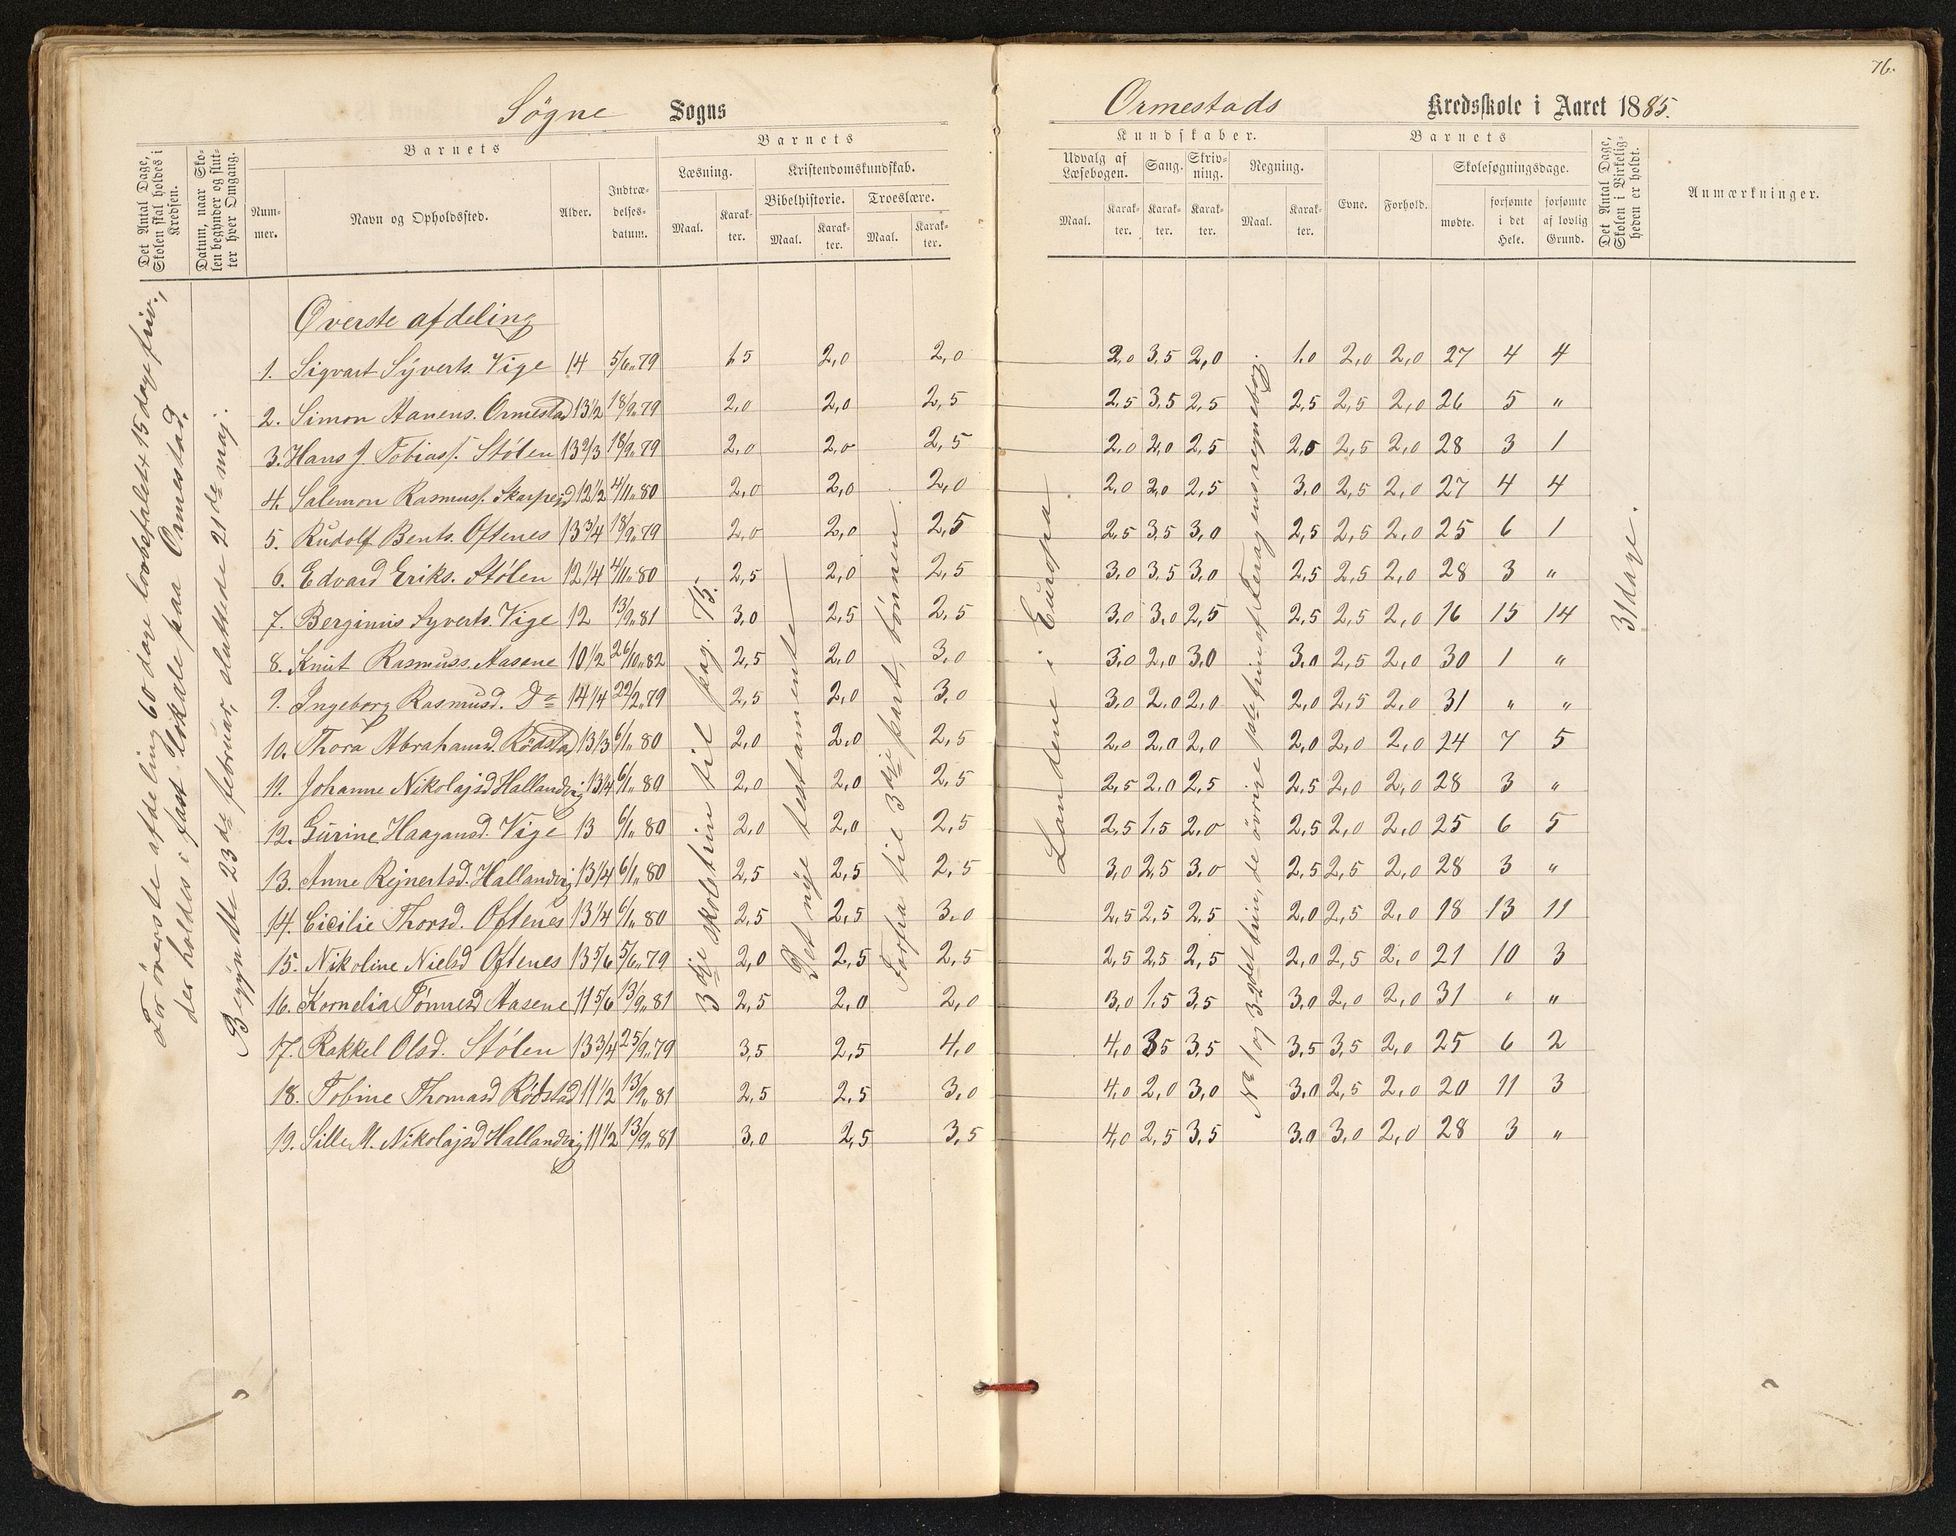 76.
Søgne Sogns
Ormestads Kredsskole i Aaret 1885.
Det Antal Dage, Skolen skal holdes i Kredsen.
Datum, naar Skolen begynder og slutter hver Omgang.
Barnets
Nummer.
Navn og Opholdssted.
Alder.
Indtrædelsesdatum.
Barnets
Læsning.
Maal.
Karakter.
Kristendomskundskab.
Bibelhistorie.
Maal.
Karakter.
Troeslære.
Maal.
Karakter.
Kundskaber.
Udvalg af Læsebogen.
Maal.
Karakter.
Sang.
Karakter.
Skrivning.
Karakter.
Regning.
Maal.
Karakter.
Barnets
Evne.
Forhold.
Skolesøgningsdage.
mødte.
forsømte i det Hele.
forsømte af lovlig Grund.
Det Antal Dage, Skolen i Virkeligheden er holdt.
Anmærkninger.
For øverste afdeling 60 dage lovbefalet 15 dage friv.,
der holdes i fast Lokale paa Ormestad.
Begyndte 23de februar, sluttede 21de maj.
3dje skoletrin til pag. 75.
Det nye testamente
Forfra til 3dje part, bønnen.
Landene i Europa.
No 1 og 3 2det trin, de øvrige 1ste trin af Feragens regnebog.
31 dage.
Øverste afdeling
1. Sigvart Syverts. Vige 14 5/6 79 1,5 2,0 2,0 2,0 3,5 2,0 1,0 2,0 2,0 27 4 4
2. Simon Aanens. Ormestad 13 1/2 18/9 79 2,0 2,0 2,5 2,5 3,5 2,5 2,5 2,5 2,0 26 5 "
3. Hans J. Tobiass. Stølen 13 2/3 18/9 79 2,0 2,0 2,5 2,0 2,0 2,5 2,5 2,5 2,0 28 3 1
4. Salemon Rasmuss. Skarpejd 12 1/2 4/11 80 2,0 2,0 2,0 2,0 3,0 2,5 3,0 2,5 2,0 27 4 4
5. Rudolf Bents. Oftenes 13 3/4 18/9 79 2,0 2,0 2,5 2,5 3,5 3,0 2,5 2,5 2,0 25 6 1
6. Edvard Eriks. Stølen 12 1/4 4/11 80 2,5 2,0 2,5 3,0 3,5 3,0 2,5 2,5 2,0 28 3 "
7. Berginius Syverts. Vige 12 13/9 81 3,0 2,5 2,5 3,0 3,0 2,5 2,5 2,5 2,0 16 15 14
8. Knut Rasmuss. Aasene 10 1/2 26/10 82 2,5 2,0 3,0 3,0 2,0 3,0 3,0 2,5 2,0 30 1 "
9. Ingeborg Rasmusd. Do 14 1/4 22/2 79 2,5 2,0 3,0 3,0 2,0 2,0 2,0 2,5 2,0 31 " "
10. Thora Abrahamsd. Rødstad 13 1/3 6/1 80 2,0 2,0 2,5 2,0 2,0 2,0 2,0 2,0 2,0 24 7 5
11. Johanne Nikolajsd Hallandvig 13 1/4 6/1 80 2,0 2,0 2,5 2,5 2,0 2,5 2,5 2,0 2,0 28 3 "
12. Gurine Haagansd. Vige 13 6/1 80 2,0 2,0 2,5 2,5 1,5 2,0 2,5 2,0 2,0 25 6 5
13. Anne Rejnertsd. Hallandvig 13 1/4 6/1 80 2,5 2,5 2,5 3,0 2,5 3,0 2,5 2,5 2,0 28 3 "
14. Cicilie Thorsd. Oftenes 13 1/4 6/1 80 2,5 2,5 3,0 2,5 2,5 2,5 2,0 2,5 2,0 18 13 11
15. Nikoline Nielsd Oftenes 13 5/6 5/6 79 2,0 2,5 2,5 2,5 2,5 2,5 2,0 2,5 2,0 21 10 3
16. Kornelia Tønnesd Aasene 11 5/6 13/9 81 2,5 2,0 2,0 3,0 1,5 3,5 3,0 2,0 2,0 31 " "
17. Rakkel Olsd. Stølen 13 3/4 25/9 79 3,5 2,5 4,0 4,0 3,5 3,5 3,5 3,5 2,0 25 6 2
18. Tobine Thomasd Rødstad 11 1/2 13/9 81 2,5 2,5 3,0 4,0 2,0 3,0 3,0 2,5 2,0 20 11 3
19. Sille M. Nikolajsd Hallandvig 11 1/2 13/9 81 3,0 2,5 3,5 4,0 2,5 3,5 3,0 3,0 2,0 28 3 "